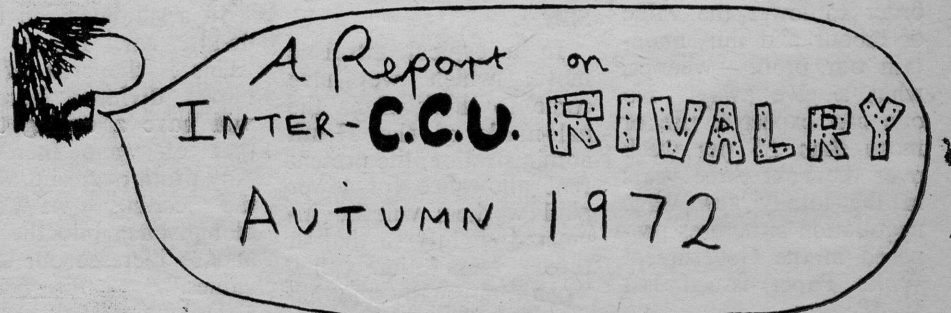 A Report on
INTER-C.C.U. RIVALRY
AUTUMN 1972